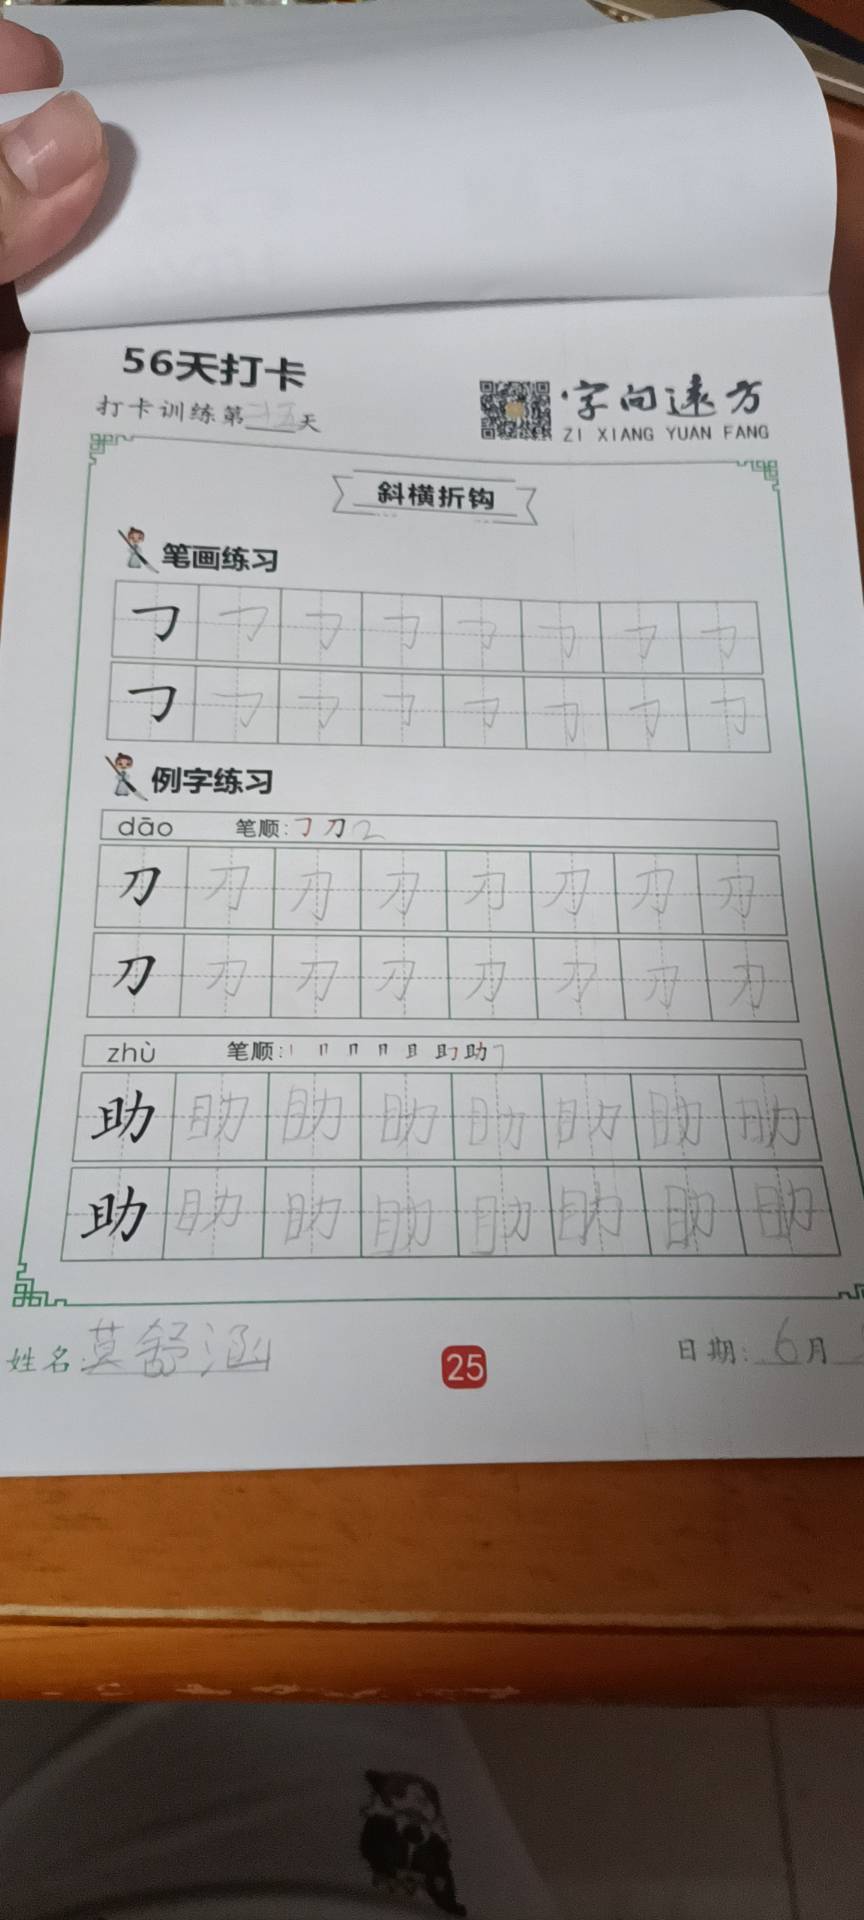 56天打卡
打卡训练第廿五天
字向远方
ZI XIANG YUAN FANG
斜横折钩
笔画练习
例字练习
dāo 笔顺: ㇆ 刀 2
刀 刀 刀 刀 刀 刀 刀 刀
刀 刀 刀 刀 刀 刀 刀 刀
zhù 笔顺: 助 7
助 助 助 助 助 助 助 助
助 助 助 助 助 助 助 助
姓名: 莫舒涵
25
日期: 6月